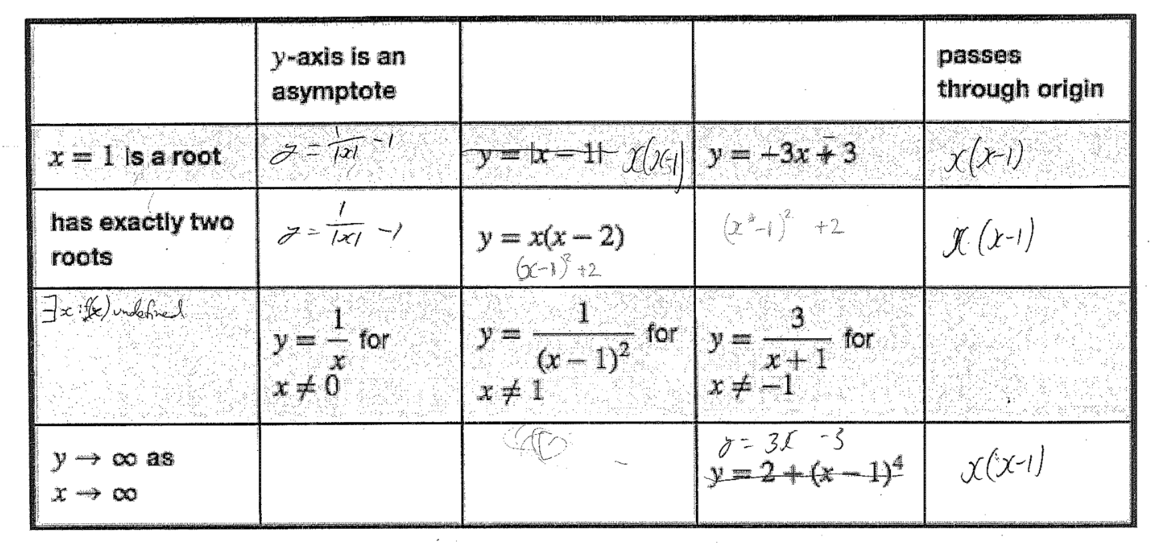 y-axis is an
asymptote
passes
through origin
x = 1 is a root
y = 1/|x| - 1
y = |x - 1| x(x-1)
y = -3x + 3
x(x-1)
has exactly two
roots
y = 1/|x| - 1
y = x(x - 2)
(x-1)² + 2
(x²-1)² + 2
x(x-1)
∃x : f(x) undefined
y = 1/x for
x ≠ 0
y = 1/(x - 1)² for
x ≠ 1
y = 3/(x + 1) for
x ≠ -1
y → ∞ as
x → ∞
y = 3x - 3
y = 2 + (x - 1)⁴
x(x-1)